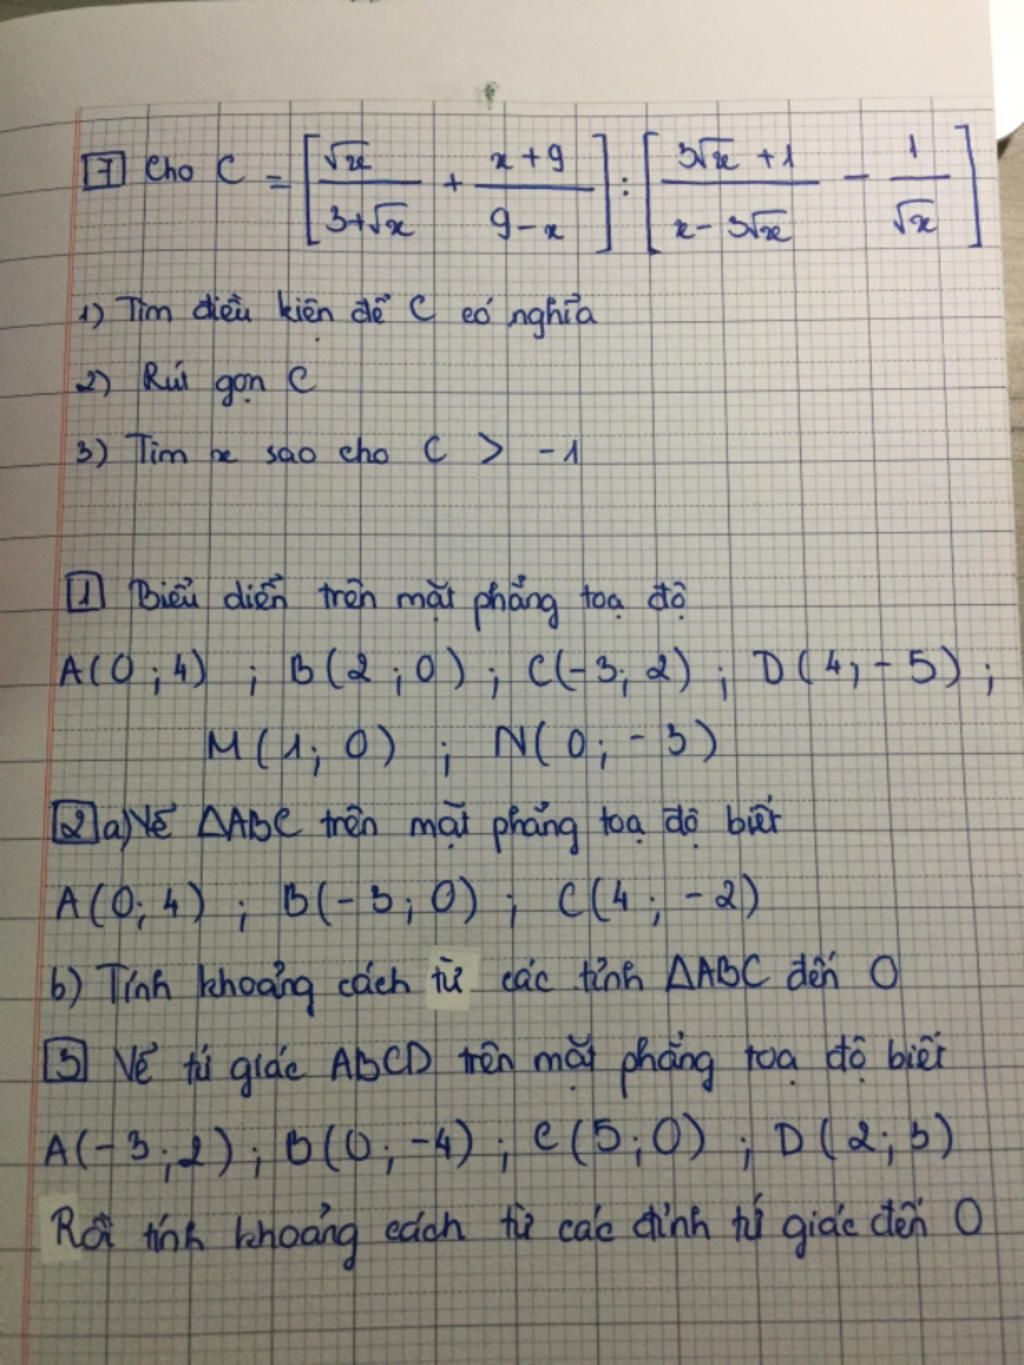 7 Cho C = [√x/(3+√x) + (x+9)/(9-x)] : [(3√x+1)/(x-3√x) - 1/√x]
1) Tìm điều kiện để C có nghĩa
2) Rút gọn C
3) Tìm x sao cho C > -1
1 Biểu diễn trên mặt phẳng toạ độ
A(0;4) ; B(2;0) ; C(-3;2) ; D(4;-5) ;
M(1;0) ; N(0;-3)
2 a) Vẽ ΔABC trên mặt phẳng toạ độ biết
A(0;4) ; B(-3;0) ; C(4;-2)
b) Tính khoảng cách từ các tỉnh ΔABC đến O
3 Vẽ tứ giác ABCD trên mặt phẳng toạ độ biết
A(-3;2) ; B(0;-4) ; C(5;0) ; D(2;3)
Rồi tính khoảng cách từ các đỉnh tứ giác đến O